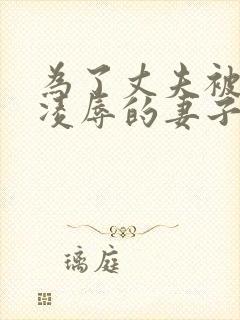 為了丈夫被
凌辱的妻子
璃庭